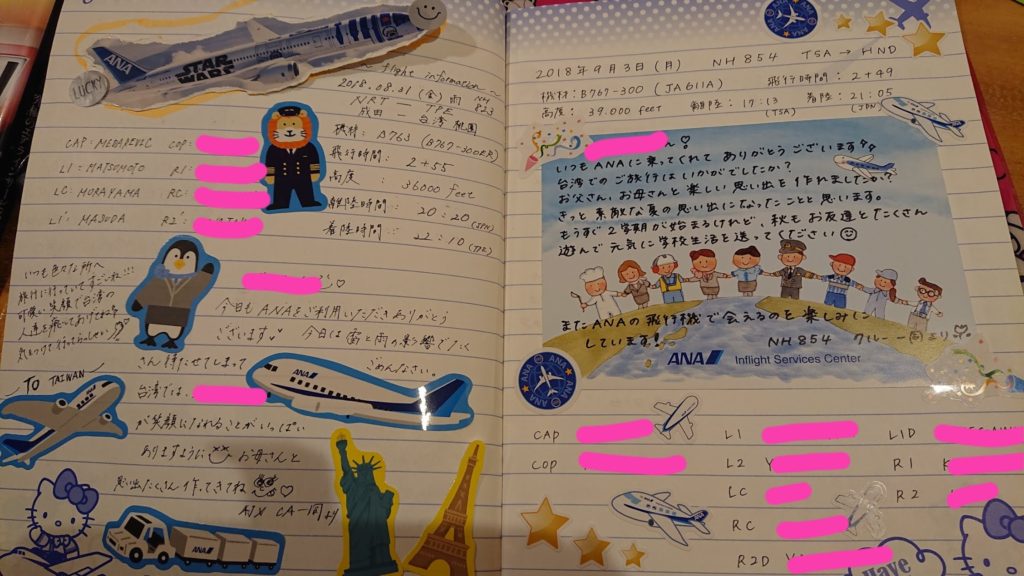 ANA
STAR WARS
LUCKY
~ flight information ~
2018.08.31 (金) 雨 NH 823
NRT — TPE
成田 — 台湾桃園
機材: B763 (B767-300ER)
飛行時間: 2+55
高度: 36000 feet
離陸時間: 20:20 (JPN)
着陸時間: 22:10 (TPE)
CAP: COP:
L1: MATSUMOTO R1:
LC: MORAYAMA RC:
L2: MASUDA R2:
いつも色々な所へ
旅行に行っていてすごいね!!!
可愛い笑顔で台湾の
人達を
気をつけて行ってらっしゃい♡
今日もANAをご利用いただきありがとう
ございます♥ 今日は雷と雨の影響でたく
さん待たせてしまって ごめんなさい。
ANA
TO TAIWAN
台湾では、
が笑顔になれることがいっぱい
ありますように お母さんと
思い出たくさん作ってきてね ♡
CA一同より
ANA
2018年9月3日(月) NH 854 TSA → HND
機材: B767-300 (JA611A) 飛行時間: 2+49
高度: 39,000 feet 離陸: 17:13 (TSA) 着陸: 21:05 (JPN)
ん!♡
いつもANAに乗ってくれて ありがとうございます
台湾でのご旅行はいかがでしたか?
お父さん、お母さんと楽しい思い出を作れましたか?
きっと素敵な夏の思い出になったことと思います。
もうすぐ2学期が始まるけれど、秋もお友達とたくさん
遊んで元気に学校生活を送ってください☺
またANAの飛行機で会えるのを楽しみに
しています!
NH 854 クルー一同より
ANA Inflight Services Center
ANA
CAP L1 L1D
COP L2 R1
LC R2
RC
R2D
Have